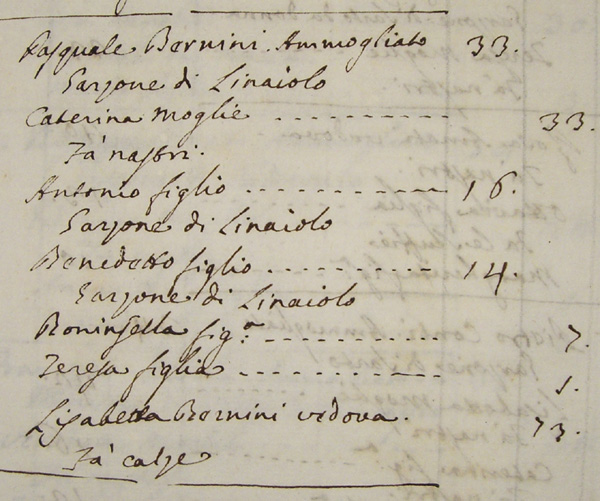 Pasquale Bernini. Ammogliato 33.
Garzone di Linaiolo
Caterina moglie .......... 33.
Fà nastri.
Antonio figlio .......... 16.
Garzone di Linaiolo
Benedetto figlio .......... 14.
Garzone di Linaiolo
Boninsella fig.a .......... 7.
Teresa figlia .......... 1.
Lisabetta Bernini vedova. 73.
Fà calze